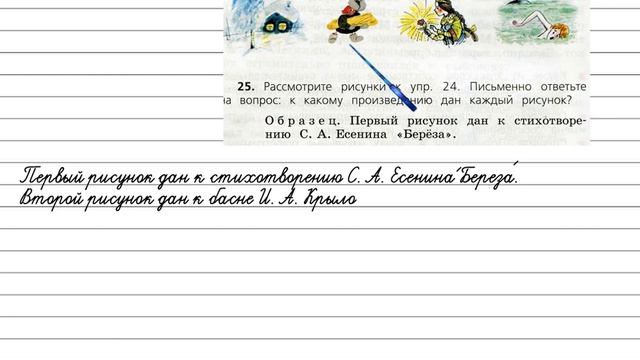 25. Рассмотрите рисунки к упр. 24. Письменно ответьте
на вопрос: к какому произведению дан каждый рисунок?
Образец. Первый рисунок дан к стихотворе-
нию С. А. Есенина «Берёза».
Первый рисунок дан к стихотворению С. А. Есенина "Береза".
Второй рисунок дан к басне И. А. Крыло